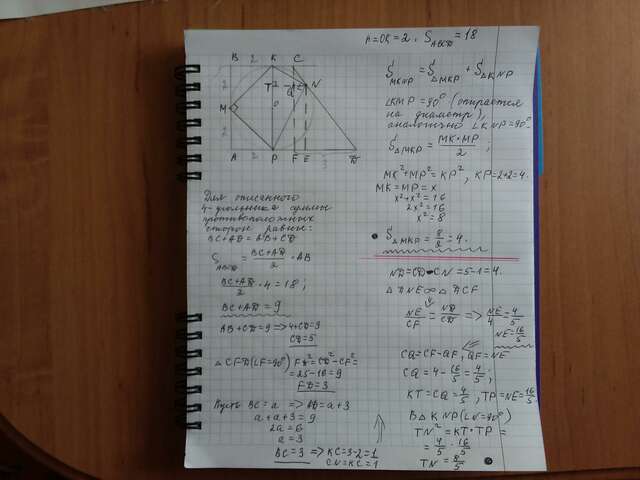 r=OK=2, S ABCD=18
B 2 K C
2 T Q N
M O
2
A 2 P F E 3 D
Для описанного
4-угольника суммы
противоположных
сторон равны:
BC+AD=AB+CD
S ABCD = BC+AD/2 · AB
BC+AD/2 · 4 = 18;
BC+AD=9
AB+CD=9 => 4+CD=9
CD=5
△CFD(∠F=90°) FD²=CD²-CF²=
=25-16=9
FD=3
Пусть BC=a => AD=a+3
a+a+3=9
2a=6
a=3
BC=3 => KC=3-2=1
CN=KC=1
S MKNP = S △MKP + S △KNP
∠KMP=90° (опирается
на диаметр),
аналогично ∠KNP=90°.
S △MKP = MK·MP/2;
MK²+MP²=KP², KP=2+2=4.
MK=MP=x
x²+x²=16
2x²=16
x²=8
S △MKP = 8/2 = 4.
ND=CD-CN=5-1=4.
△DNE∞△DCF
NE/CF = ND/CD => NE/4 = 4/5
NE=16/5
CQ=CF-QF, QF=NE
CQ=4-16/5=4/5;
KT=CQ=4/5, TP=NE=16/5
В △KNP(∠N=90°)
TN²=KT·TP=
=4/5·16/5
TN=8/5